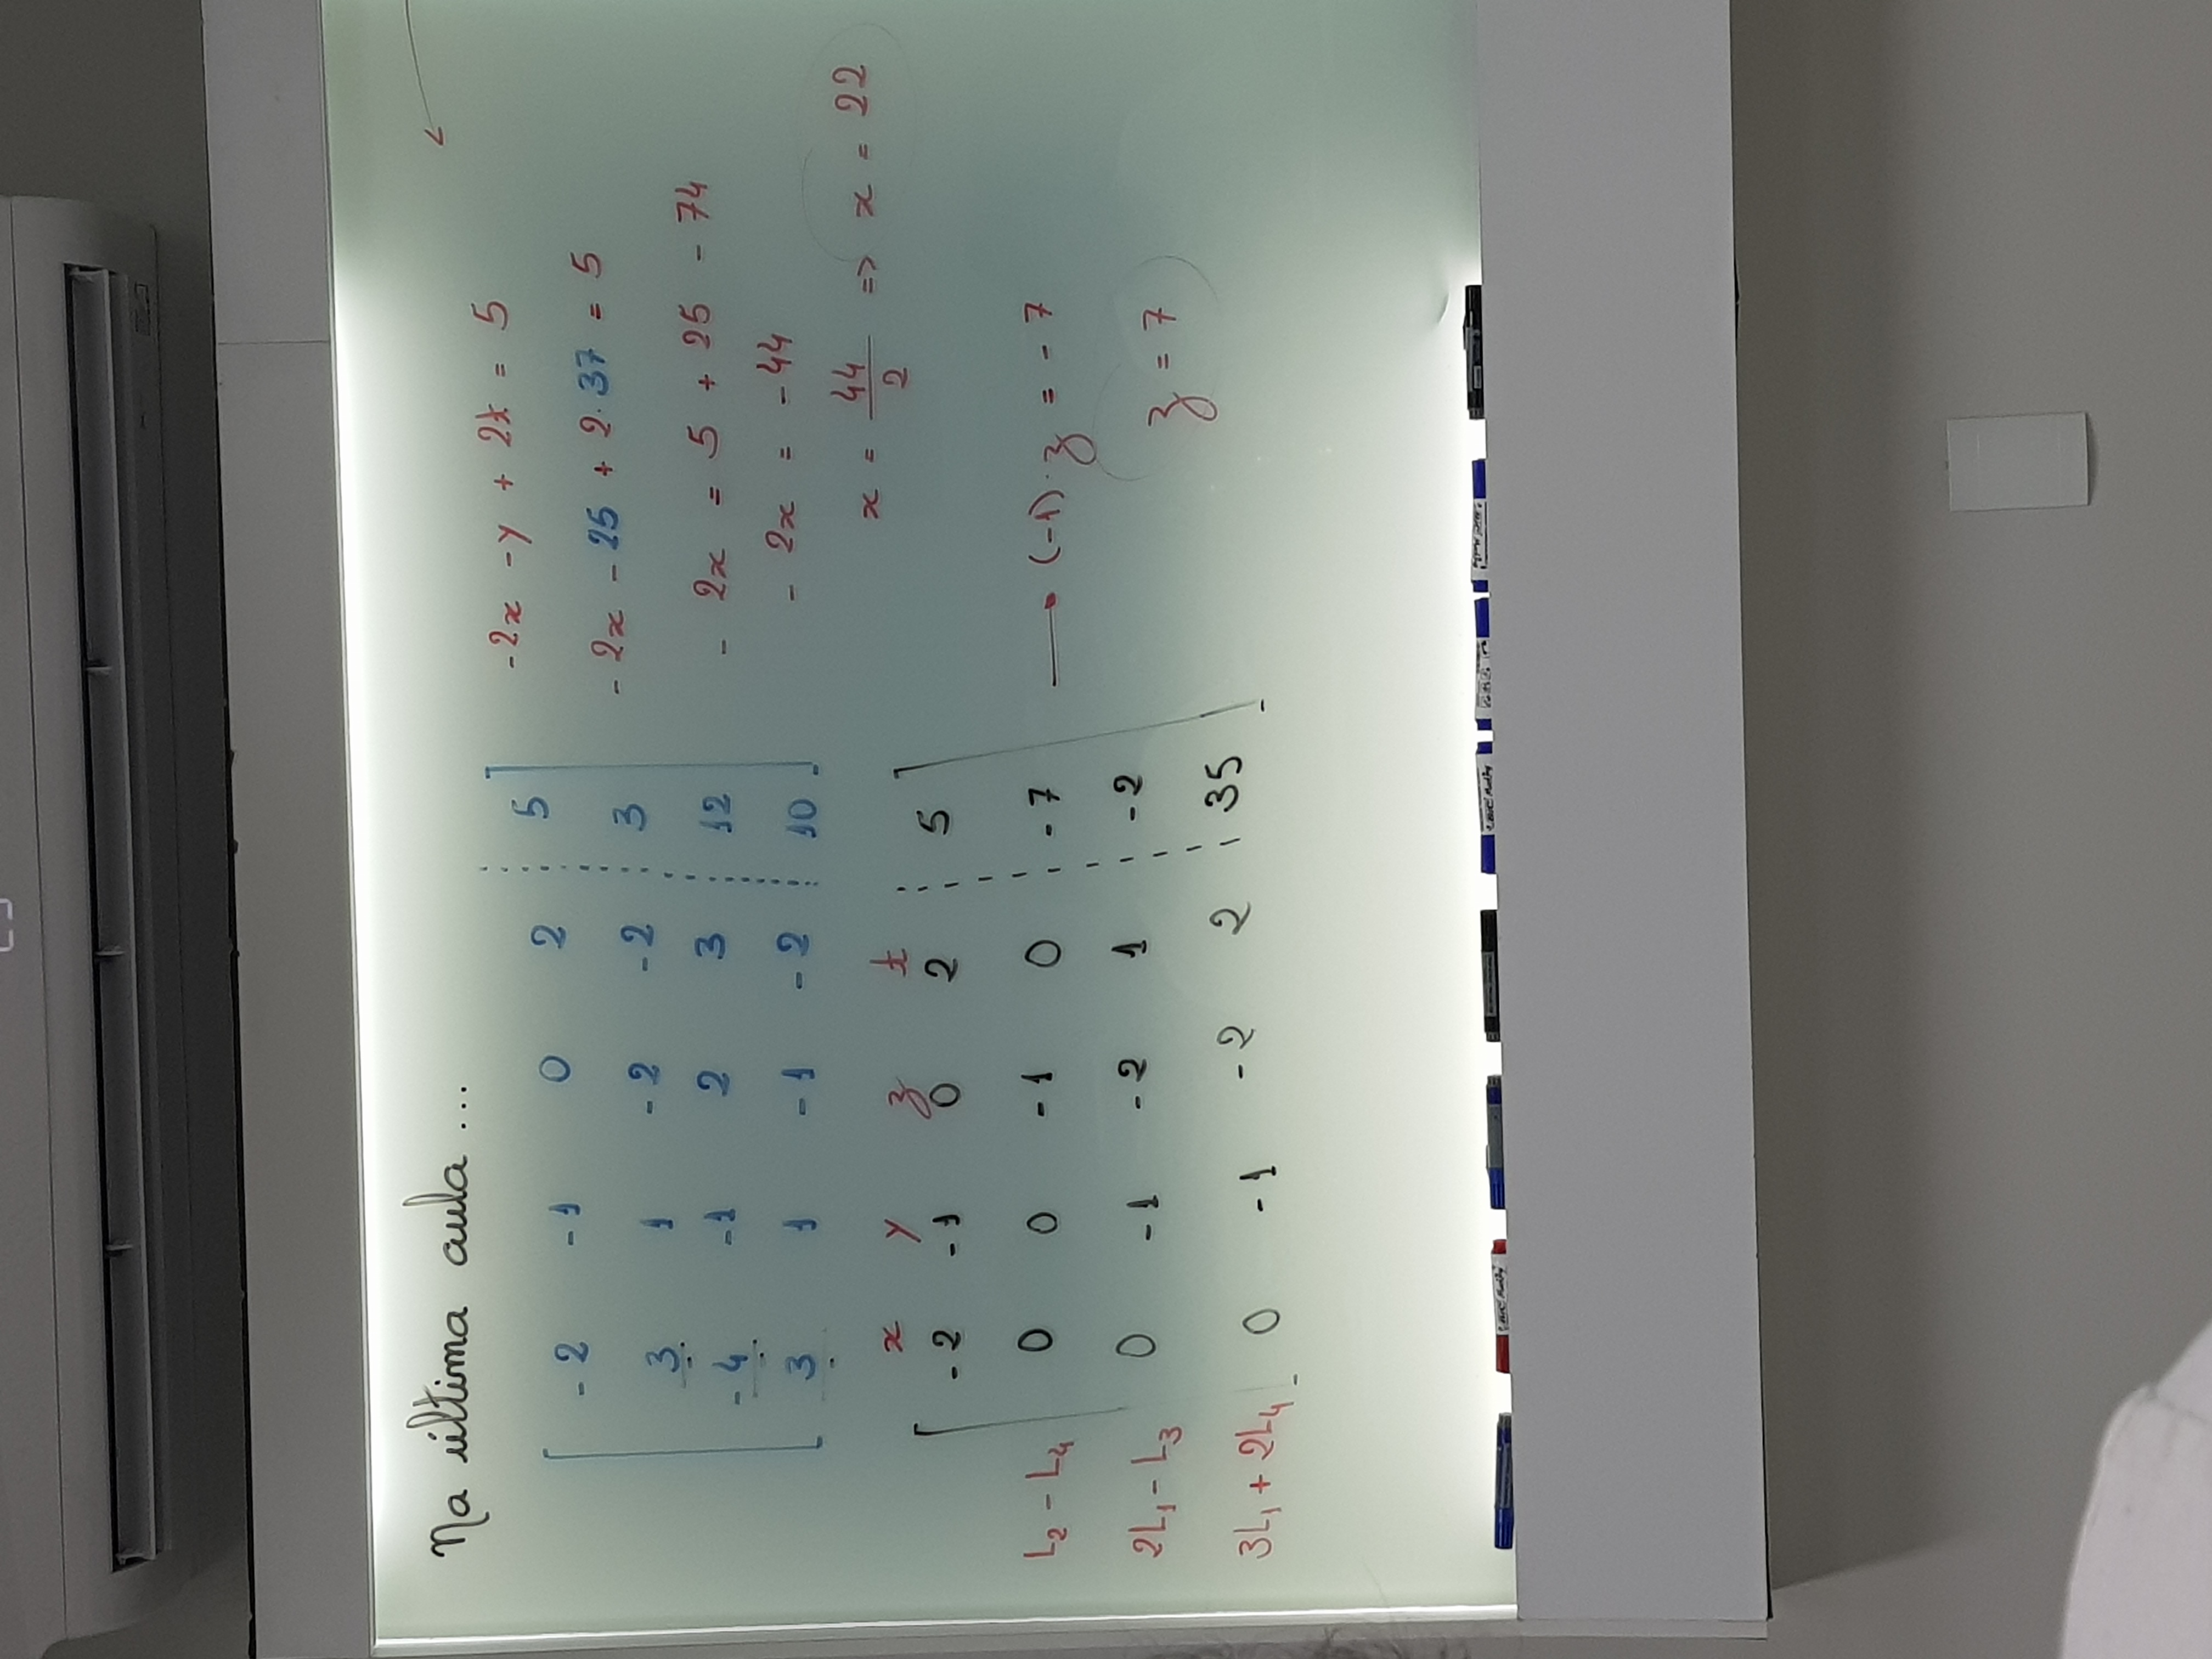 Na última aula ...
-2 -1 0 2 5
3 1 -2 -2 3
-4 -1 2 3 12
3 1 -1 -2 10
x y z t
-2 -1 0 2 5
L2 - L4 0 0 -1 0 -7
2L1 - L3 0 -1 -2 1 -2
3L1 + 2L4 0 -1 -2 2 35
-2x - y + 2t = 5
-2x - 25 + 2·37 = 5
- 2x = 5 + 25 - 74
- 2x = -44
x = 44/2 => x = 22
(-1)·z = -7
z = 7